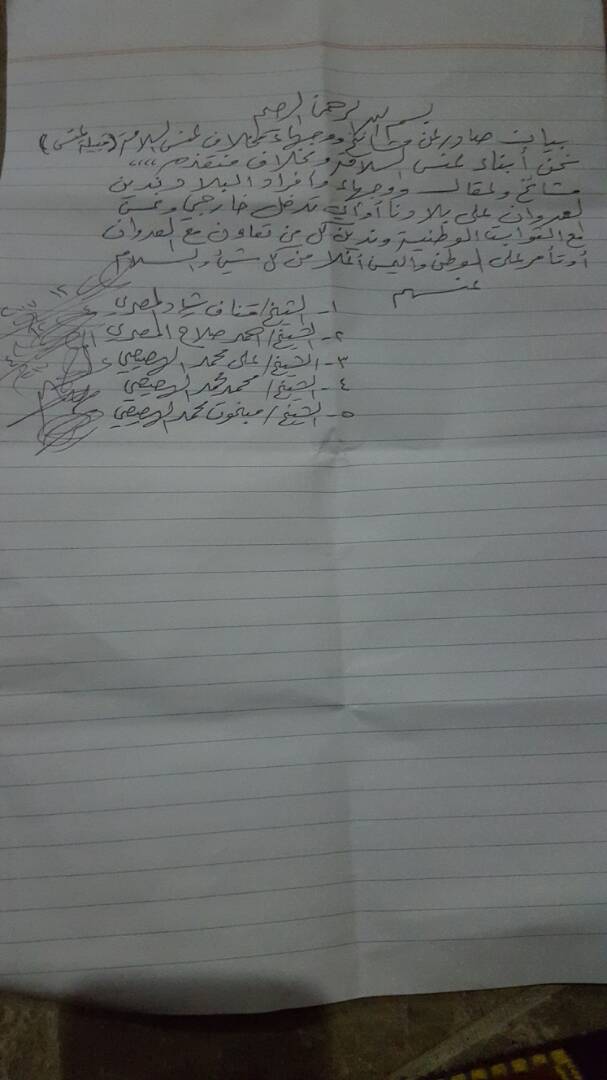 بسم الله الرحمن الرحيم
بيان صادر عن مشائخ ووجهاء مخلاف عنس السلامة (قبيلة عنس)
نحن أبناء عنس السلامة ومخلاف منقذم ،،،،
مشائخ وعقال ووجهاء وأفراد البلاد ندين
العدوان على بلادنا أو أي تدخل خارجي ونحن
مع الثوابت الوطنية وندين كل من تعاون مع العدوان
أو تأمر على الوطن واليمن أغلا من كل شيئ والسلام
عنهم
١- الشيخ/ قناف المصري
٢- الشيخ/ احمد صلاح المصري
٣- الشيخ/ علي محمد الهصيصي
٤- الشيخ/ محمد محمد الهصيصي
٥- الشيخ/ مبخوت محمد الهصيصي